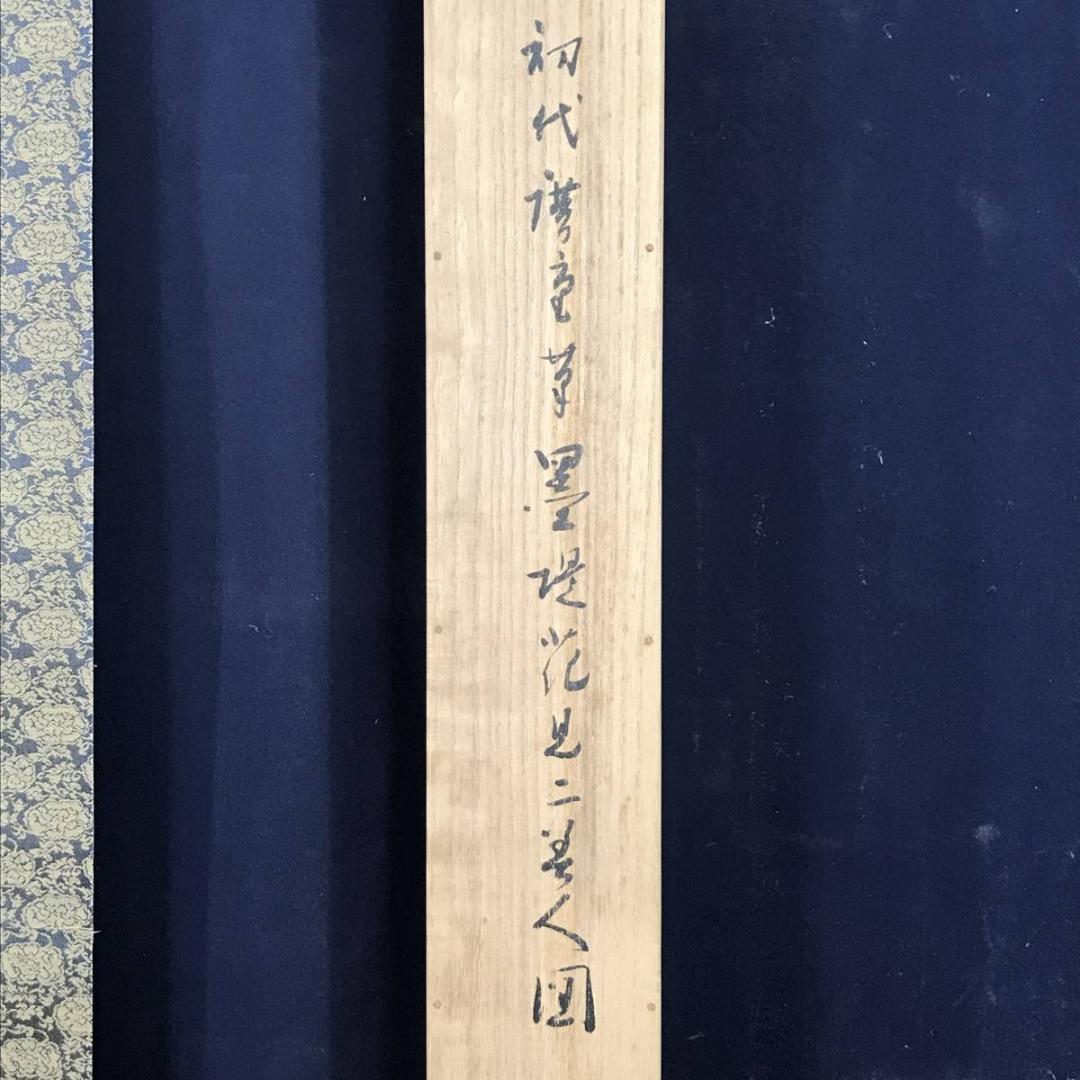 初代廣重筆墨堤花見二美人図